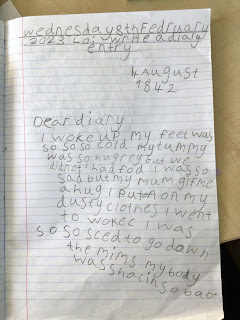 Wednesday 8th February
2023 Lo: write a diary
entry
4 August
1842
Dear diary
I woke up my feet was
so so so cold my tummy
was so hugrey but we
did not had fod I was so
sad but my mum gif me
a hug I put on my
dusty clothes I went
to woked I was
so so sced to go dawn
the mims my body
was shacing
so bad.